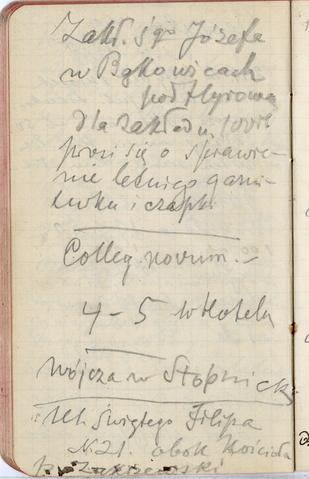 Zakł. śgo Józefa
w Bąkowicach
pod Hyrową
dla zakładu
prosi się o sprawie-
nie letniego garni-
turku i czapki
Colleg. novum. –
4 – 5 w Hotelu
Wójcza w Stopnick
Ul. Świętego Filipa
N. 21. obok Kościoła